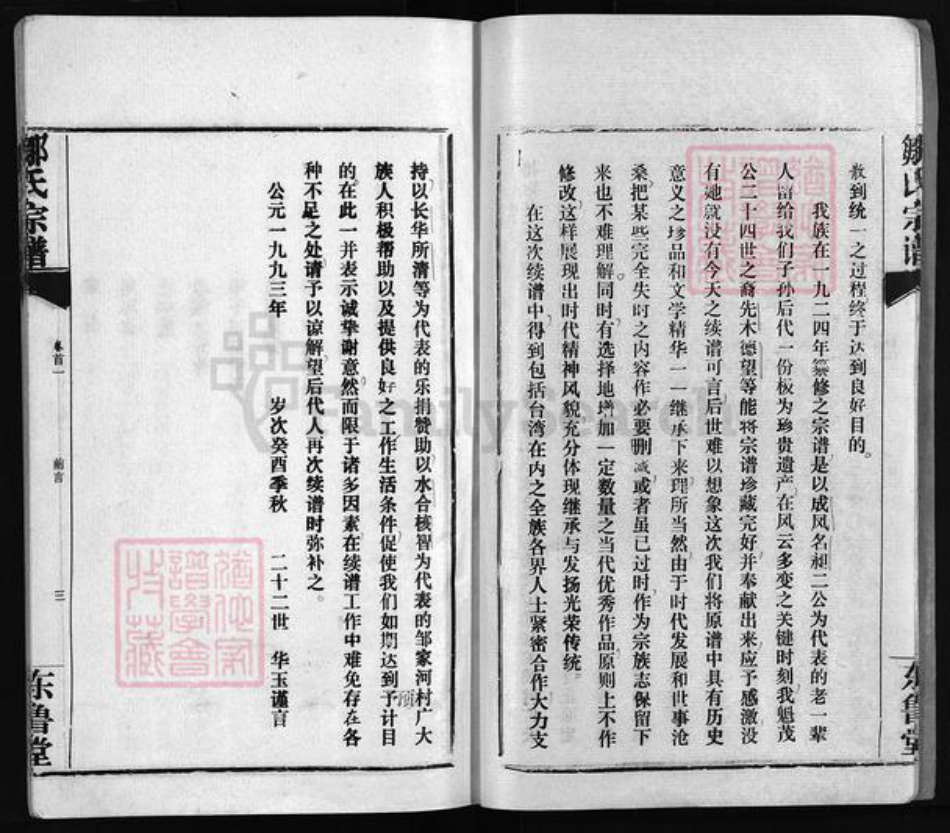 敌到统一之过程终于达到良好目的。
我族在一九二四年纂修之宗谱是以成凤名昶二公为代表的老一辈
人留给我们子孙后代一份极为珍贵遗产在风云多变之关键时刻我魁茂
公二十四世之裔先木德望等能将宗谱珍藏完好并奉献出来应予感激没
有她就没有今天之续谱可言后世难以想象这次我们将原谱中具有历史
意义之珍品和文学精华一一继承下来理所当然由于时代发展和世事沧
桑把某些完全失时之内容作必要删减或者虽已过时作为宗族志保留下
来也不难理解。同时有选择地增加一定数量之当代优秀作品原则上不作
修改这样展现出时代精神风貌充分体现继承与发扬光荣传统。
在这次续谱中得到包括台湾在内之全族各界人士紧密合作大力支
持以长华所清等为代表的乐捐赞助以水合核智为代表的邹家河村广大
族人积极帮助以及提供良好之工作生活条件促使我们如期达到予计目
预
的。在此一并表示诚挚谢意。然而限于诸多因素在续谱工作中难免存在各
种不足之处请予以谅解望后代人再次续谱时弥补之。
公元一九九三年 岁次癸酉季秋 二十二世 华玉谨言
邹氏宗谱
卷首一
前言
三
东鲁堂
FamilySearch